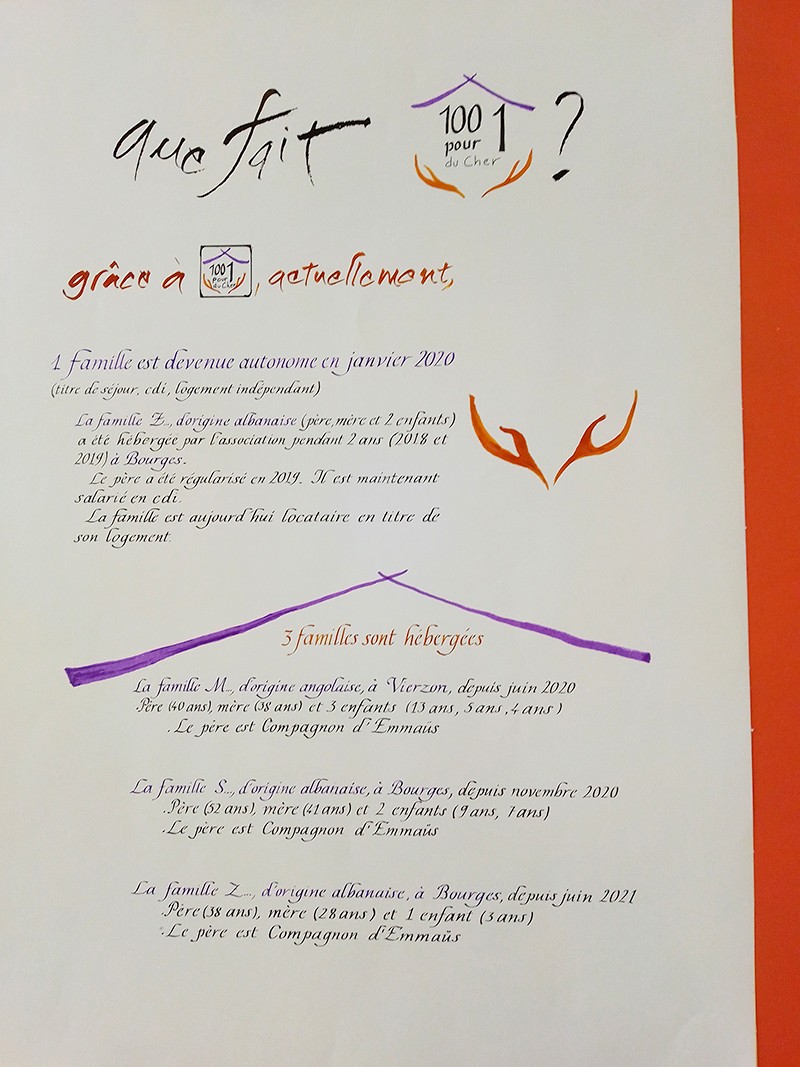 que fait 100 pour 1 du Cher ?
grâce à 100 pour 1 du Cher, actuellement,
1 famille est devenue autonome en janvier 2020
(titre de séjour, cdi, logement indépendant)
La famille Z..., d'origine albanaise (père, mère et 2 enfants)
a été hébergée par l'association pendant 2 ans (2018 et
2019) à Bourges.
Le père a été régularisé en 2019. Il est maintenant
salarié en cdi.
La famille est aujourd'hui locataire en titre de
son logement.
3 familles sont hébergées
La famille M..., d'origine angolaise, à Vierzon, depuis juin 2020
.Père (40 ans), mère (38 ans) et 3 enfants (13 ans, 5 ans, 4 ans)
.Le père est Compagnon d'Emmaüs
La famille S..., d'origine albanaise, à Bourges, depuis novembre 2020
.Père (52 ans), mère (41 ans) et 2 enfants (9 ans, 7 ans)
.Le père est Compagnon d'Emmaüs
La famille Z..., d'origine albanaise, à Bourges, depuis juin 2021
.Père (38 ans), mère (28 ans) et 1 enfant (3 ans)
.Le père est Compagnon d'Emmaüs